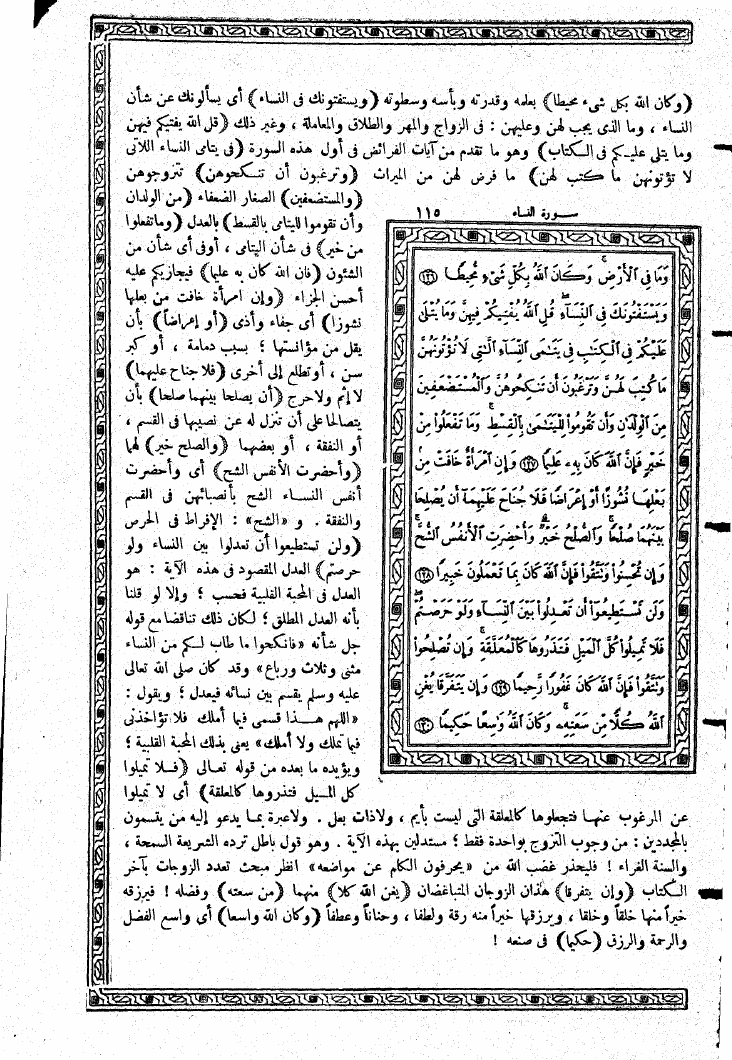 (وكان الله بكل شىء محيطا) بعلمه وقدرته وبأسه وسطوته (ويستفتونك فى النساء) أى يسألونك عن شأن
النساء ، وما الذى يجب لهن وعليهن : فى الزواج والمهر والطلاق والمعاملة ، وغير ذلك (قل الله يفتيكم فيهن
وما يتلى عليكم فى الكتاب) وهو ما تقدم من آيات الفرائض فى أول هذه السورة (فى يتامى النساء اللاتى
لا تؤتونهن ما كتب لهن) ما فرض لهن من الميراث (وترغبون أن تنكحوهن) تتزوجوهن
(والمستضعفين) الصغار الضعفاء (من الولدان
وأن تقوموا لليتامى بالقسط) بالعدل (وما تفعلوا
من خير) فى شأن اليتامى ، أو فى أى شأن من
الشئون (فان الله كان به عليما) فيجازيكم عليه
أحسن الجزاء (وإن امرأة خافت من بعلها
نشوزا) أى جفاء وأذى (أو إعراضاً) بأن
يقل من مؤانستها ؛ بسبب دمامة ، أو كبر
سن ، أو تطلع إلى أخرى (فلا جناح عليهما)
لا إثم ولا حرج (أن يصلحا بينهما صلحا) بأن
يتصالحا على أن تنزل له عن نصيبها فى القسم ،
أو النفقة ، أو بعضهما (والصلح خير) لهما
(وأحضرت الأنفس الشح) أى وأحضرت
أنفس النساء الشح بأنصبائهن فى القسم
والنفقة . و «الشح» : الإفراط فى الحرص
(ولن تستطيعوا أن تعدلوا بين النساء ولو
حرصتم) العدل المقصود فى هذه الآية : هو
العدل فى المحبة القلبية فحسب ؛ وإلا لو قلنا
بأنه العدل المطلق ؛ لكان ذلك تناقضا مع قوله
جل شأنه «فانكحوا ما طاب لكم من النساء
مثنى وثلاث ورباع» وقد كان صلى الله تعالى
عليه وسلم يقسم بين نسائه فيعدل ؛ ويقول :
«اللهم هذا قسمى فيما أملك فلا تؤاخذنى
فيما تملك ولا أملك» يعنى بذلك المحبة القلبية ؛
ويؤيده ما بعده من قوله تعالى (فلا تميلوا
كل الميل فتذروها كالمعلقة) أى لا تميلوا
سورة النساء ١١٥
وَمَا فِى ٱلْأَرْضِ ۚ وَكَانَ ٱللَّهُ بِكُلِّ شَىْءٍ مُّحِيطًا ﴿١٢٦﴾
وَيَسْتَفْتُونَكَ فِى ٱلنِّسَآءِ ۖ قُلِ ٱللَّهُ يُفْتِيكُمْ فِيهِنَّ وَمَا يُتْلَىٰ
عَلَيْكُمْ فِى ٱلْكِتَٰبِ فِى يَتَٰمَى ٱلنِّسَآءِ ٱلَّٰتِى لَا تُؤْتُونَهُنَّ
مَا كُتِبَ لَهُنَّ وَتَرْغَبُونَ أَن تَنكِحُوهُنَّ وَٱلْمُسْتَضْعَفِينَ
مِنَ ٱلْوِلْدَٰنِ وَأَن تَقُومُوا۟ لِلْيَتَٰمَىٰ بِٱلْقِسْطِ ۚ وَمَا تَفْعَلُوا۟ مِنْ
خَيْرٍ فَإِنَّ ٱللَّهَ كَانَ بِهِۦ عَلِيمًا ﴿١٢٧﴾ وَإِنِ ٱمْرَأَةٌ خَافَتْ مِنۢ
بَعْلِهَا نُشُوزًا أَوْ إِعْرَاضًا فَلَا جُنَاحَ عَلَيْهِمَآ أَن يُصْلِحَا
بَيْنَهُمَا صُلْحًا ۚ وَٱلصُّلْحُ خَيْرٌ ۗ وَأُحْضِرَتِ ٱلْأَنفُسُ ٱلشُّحَّ ۚ
وَإِن تُحْسِنُوا۟ وَتَتَّقُوا۟ فَإِنَّ ٱللَّهَ كَانَ بِمَا تَعْمَلُونَ خَبِيرًا ﴿١٢٨﴾
وَلَن تَسْتَطِيعُوٓا۟ أَن تَعْدِلُوا۟ بَيْنَ ٱلنِّسَآءِ وَلَوْ حَرَصْتُمْ ۖ
فَلَا تَمِيلُوا۟ كُلَّ ٱلْمَيْلِ فَتَذَرُوهَا كَٱلْمُعَلَّقَةِ ۚ وَإِن تُصْلِحُوا۟
وَتَتَّقُوا۟ فَإِنَّ ٱللَّهَ كَانَ غَفُورًا رَّحِيمًا ﴿١٢٩﴾ وَإِن يَتَفَرَّقَا يُغْنِ
ٱللَّهُ كُلًّا مِّن سَعَتِهِۦ ۚ وَكَانَ ٱللَّهُ وَٰسِعًا حَكِيمًا ﴿١٣٠﴾
عن المرغوب عنها فتجعلوها كالمعلقة التى ليست بأيم ، ولا ذات بعل . ولا عبرة بما يدعو إليه من يتسمون
بالمجددين : من وجوب التزوج بواحدة فقط ؛ مستدلين بهذه الآية . وهو قول باطل ترده الشريعة السمحة ،
والسنة الغراء ! فليحذر غضب الله من «يحرفون الكلم عن مواضعه» انظر مبحث تعدد الزوجات بآخر
الكتاب (وإن يتفرقا) هذان الزوجان المتباغضان (يغن الله كلا) منهما (من سعته) وفضله ! فيرزقه
خيراً منها خلقاً وخلقا ، ويرزقها خيراً منه رقة ولطفا ، وحناناً وعطفاً (وكان الله واسعا) أى واسع الفضل
والرحمة والرزق (حكيما) فى صنعه !